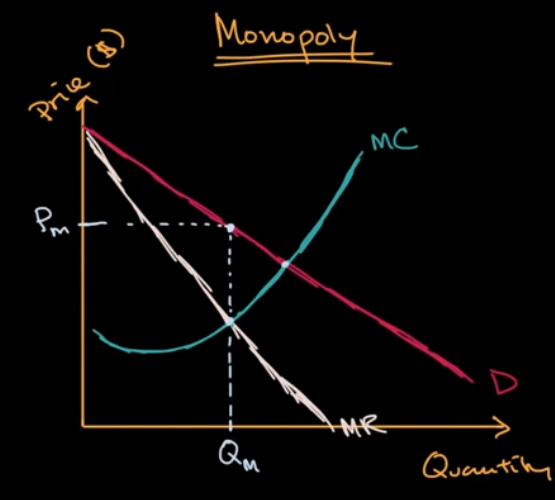 Monopoly
Price ($)
MC
Pm
D
MR
Qm
Quantity